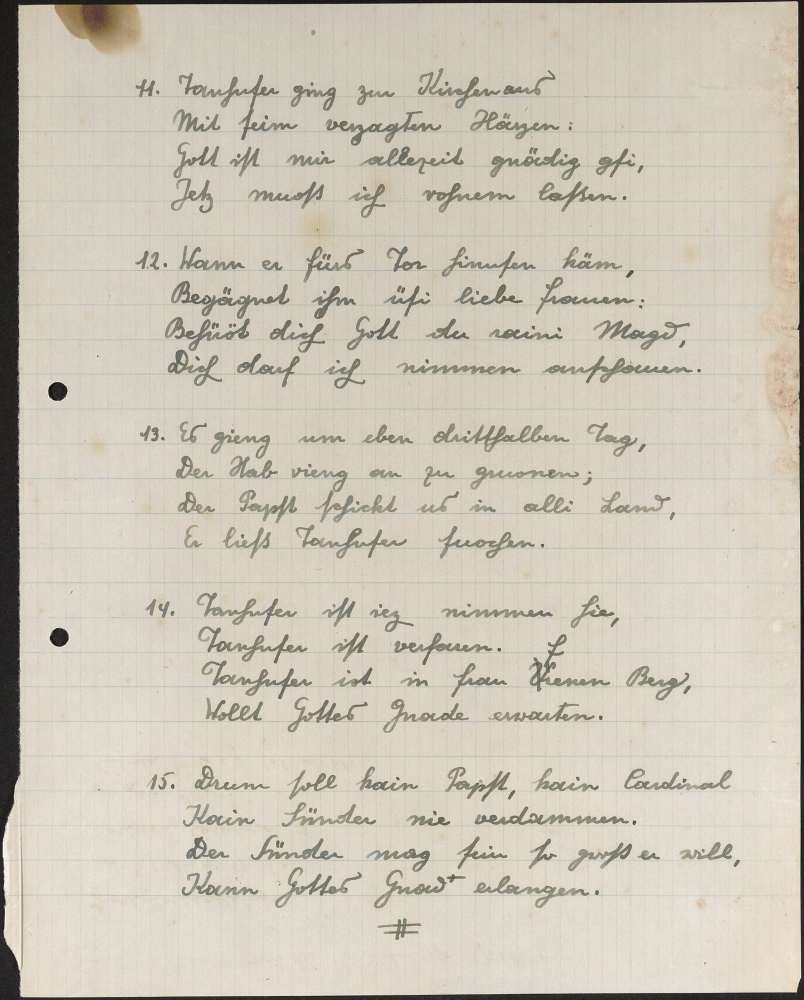 11. Tanhuser ging zur Kirchen aus
Mit seim verzagten Härzen:
Gott ist mir allezeit gnädig gsi,
Jetz muoß ich vohnem laßen.
12. Wann er fürs Tor hinußen käm,
Begägnet ihm üsi liebe frauen:
Behüöt dich Gott du raini Magd,
Dich darf ich nimmen anschauen.
13. Es gieng um eben dritthalben Tag,
Der Stab vieng an zu gruonen;
Der Papst schickt us in alli Land,
Er ließ Tanhuser suochen.
14. Tanhuser ist iez nimmen hie,
Tanhuser ist verfaren.
Tanhuser ist in frau Frenen Berg,
Wollt Gottes Gnade erwarten.
15. Drum soll kain Papst, kain Cardinal
Kain Sünder nie verdammen.
Der Sünder mag sein so groß er will,
Kann Gottes Gnad erlangen.